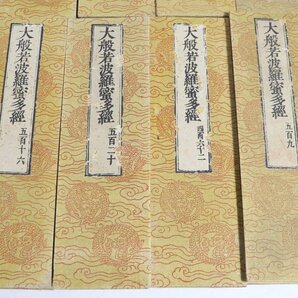 大般若波羅蜜多經 五百九
大般若波羅蜜多經 四百六十二
大般若波羅蜜多經 五百二十
大般若波羅蜜多經 五百十六